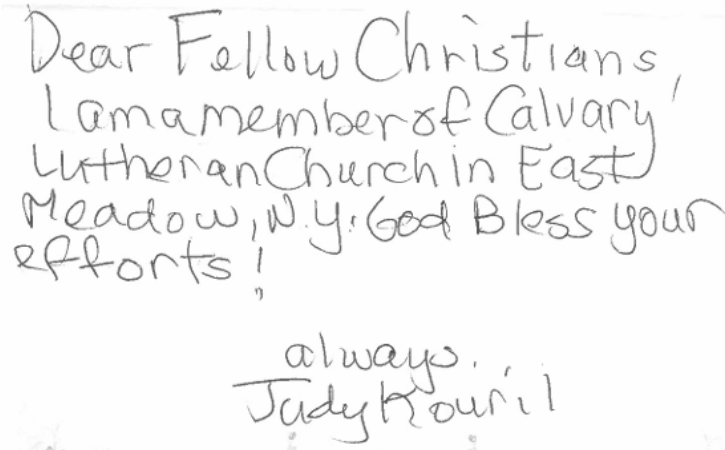 Dear Fellow Christians,
I am a member of Calvary
Lutheran Church in East
Meadow, N.Y. God Bless your
efforts!
always.
Judy Kouril